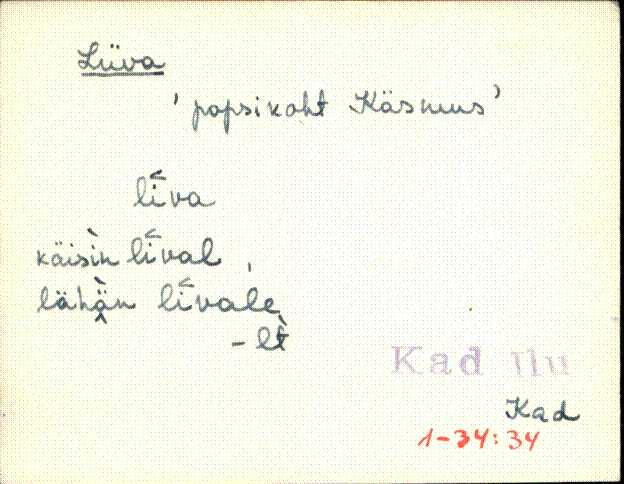 Liiva
'popsikoht Käsmus'
līva
käisìn līval,
lähän līvale
-lt
Kad Ilu
Kad
1-34:34